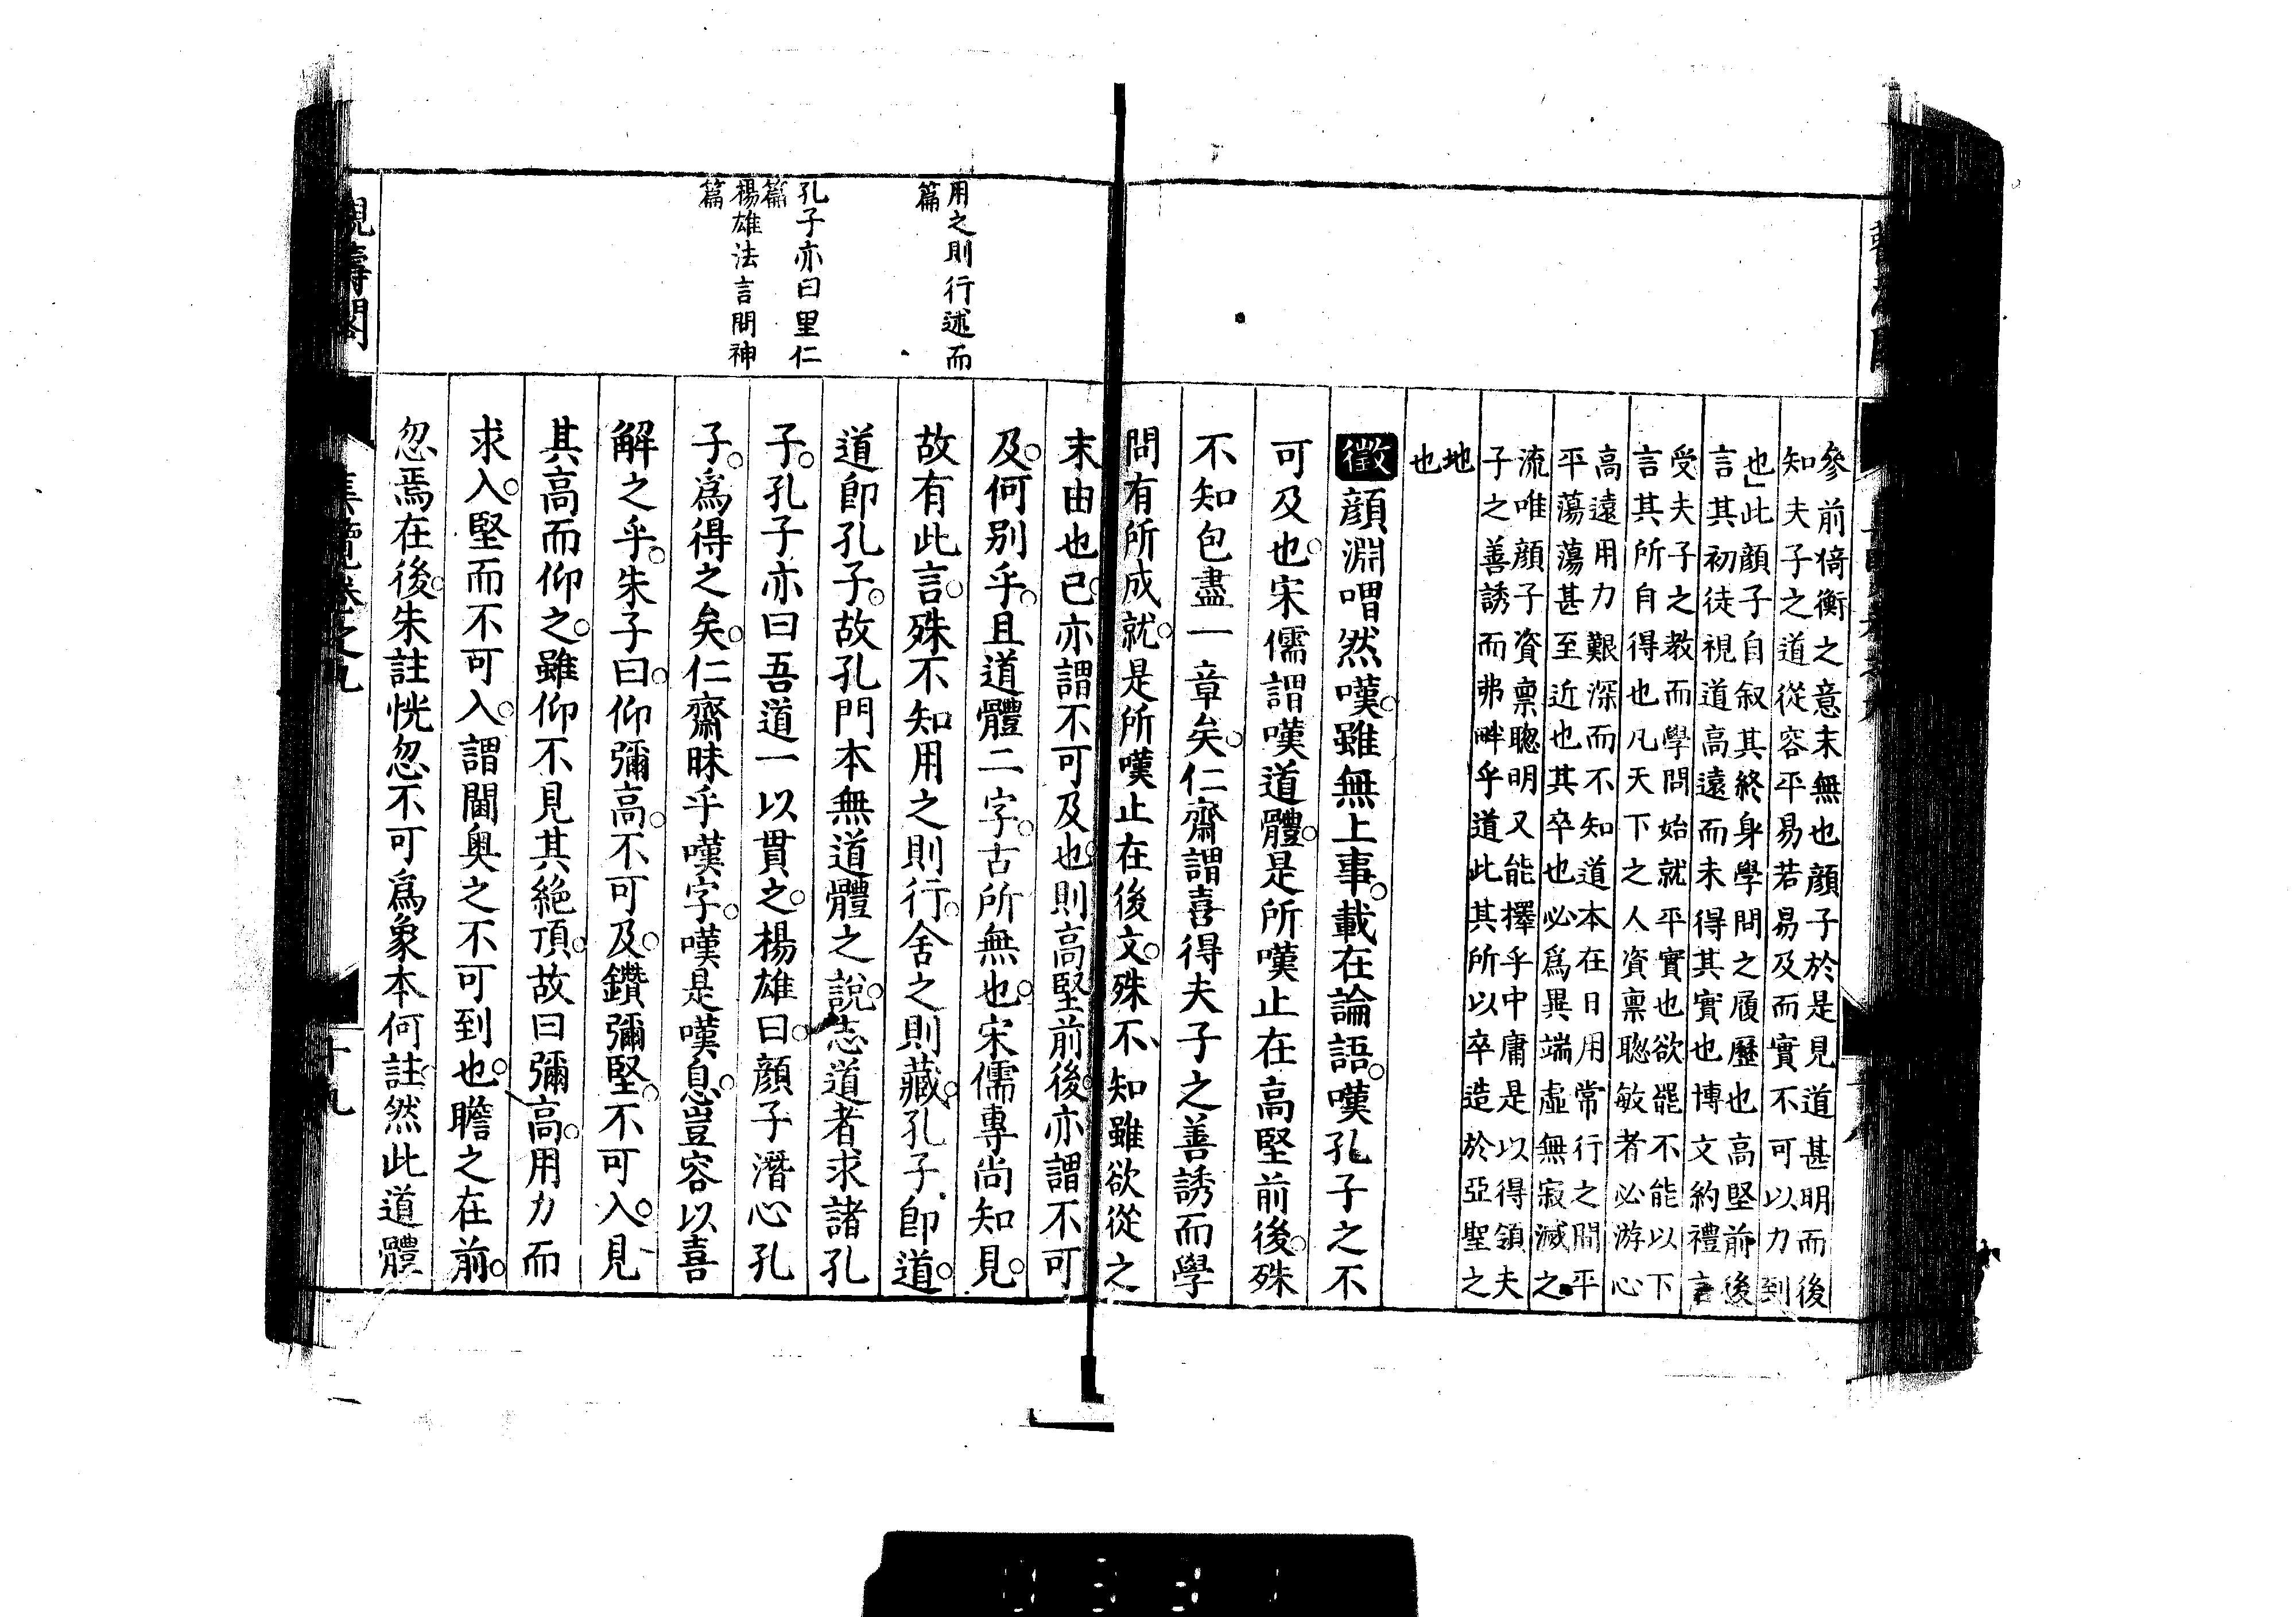 參前倚衡之意末無也顏子於是見道甚明而後
知夫子之道從容平易若易及而實不可以力到
也此顏子自叙其終身學問之履歷也高堅前後
言其初徒視道高遠而未得其實也博文約禮言
受夫子之教而學問始就平實也欲罷不能以下
言其所自得也凡天下之人資禀聰敏者必游心
高遠用力艱深而不知道本在日用常行之間平
平蕩蕩甚至近也其卒也必爲異端虛無寂滅之
流唯顏子資禀聰明又能擇乎中庸是以得領夫
子之善誘而弗畔乎道此其所以卒造於亞聖之
地
也
徵顏淵喟然嘆雖無上事載在論語嘆孔子之不
可及也宋儒謂嘆道體是所嘆止在高堅前後殊
不知包盡一章矣仁齋謂喜得夫子之善誘而學
問有所成就是所嘆止在後文殊不知雖欲從之
末由也已亦謂不可及也則高堅前後亦謂不可
及何別乎且道體二字古所無也宋儒專尚知見
故有此言殊不知用之則行舍之則藏孔子即道
道即孔子故孔門本無道體之說志道者求諸孔
子孔子亦曰吾道一以貫之楊雄曰顏子潛心孔
子爲得之矣仁齋昧乎嘆字嘆是嘆息豈容以喜
解之乎朱子曰仰彌高不可及鑽彌堅不可入見
其高而仰之雖仰不見其絶頂故曰彌高用力而
求入堅而不可入謂閫奧之不可到也瞻之在前
忽焉在後朱註恍忽不可爲象本何註然此道體
用之則行述而
篇
孔子亦曰里仁
篇
楊雄法言問神
篇
觀濤閣
集覽卷之九
十九